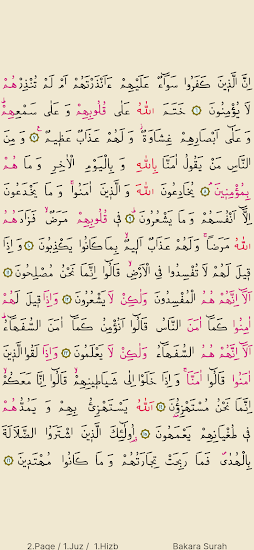 اِنَّ الَّذ۪ينَ كَفَرُوا سَوَٓاءٌ عَلَيْهِمْ ءَاَنْذَرْتَهُمْ اَمْ لَمْ تُنْذِرْهُمْ
لَا يُؤْمِنُونَ ﴿٦﴾ خَتَمَ اللّٰهُ عَلٰى قُلُوبِهِمْ وَ عَلٰى سَمْعِهِمْۜ
وَ عَلٰٓى اَبْصَارِهِمْ غِشَاوَةٌۘ وَ لَهُمْ عَذَابٌ عَظ۪يمٌ۟ ﴿٧﴾ وَ مِنَ
النَّاسِ مَنْ يَقُولُ اٰمَنَّا بِاللّٰهِ وَ بِالْيَوْمِ الْاٰخِرِ وَ مَا هُمْ
بِمُؤْمِن۪ينَۢ ﴿٨﴾ يُخَادِعُونَ اللّٰهَ وَ الَّذ۪ينَ اٰمَنُواۚ وَ مَا يَخْدَعُونَ
اِلَّٓا اَنْفُسَهُمْ وَ مَا يَشْعُرُونَۜ ﴿٩﴾ ف۪ي قُلُوبِهِمْ مَرَضٌۙ فَزَادَهُمُ
اللّٰهُ مَرَضًاۚ وَ لَهُمْ عَذَابٌ اَل۪يمٌۙ بِمَا كَانُوا يَكْذِبُونَ ﴿١٠﴾ وَ اِذَا
ق۪يلَ لَهُمْ لَا تُفْسِدُوا فِي الْاَرْضِۙ قَالُٓوا اِنَّمَا نَحْنُ مُصْلِحُونَ ﴿١١﴾
اَلَٓا اِنَّهُمْ هُمُ الْمُفْسِدُونَ وَلٰكِنْ لَا يَشْعُرُونَ ﴿١٢﴾ وَاِذَا ق۪يلَ لَهُمْ
اٰمِنُوا كَمَٓا اٰمَنَ النَّاسُ قَالُٓوا اَنُؤْمِنُ كَمَٓا اٰمَنَ السُّفَهَٓاءُۜ
اَلَٓا اِنَّهُمْ هُمُ السُّفَهَٓاءُ وَلٰكِنْ لَا يَعْلَمُونَ ﴿١٣﴾ وَاِذَا لَقُوا الَّذ۪ينَ
اٰمَنُوا قَالُٓوا اٰمَنَّاۚ وَ اِذَا خَلَوْا اِلٰى شَيَاط۪ينِهِمْۙ قَالُٓوا اِنَّا مَعَكُمْۙ
اِنَّمَا نَحْنُ مُسْتَهْزِؤُ۫نَ ﴿١٤﴾ اَللّٰهُ يَسْتَهْزِئُ بِهِمْ وَ يَمُدُّهُمْ
ف۪ي طُغْيَانِهِمْ يَعْمَهُونَ ﴿١٥﴾ اُو۬لٰٓئِكَ الَّذ۪ينَ اشْتَرَوُا الضَّلَالَةَ
بِالْهُدٰىۖ فَمَا رَبِحَتْ تِجَارَتُهُمْ وَ مَا كَانُوا مُهْتَد۪ينَ ﴿١٦﴾
2.Page / 1.Juz / 1.Hizb Bakara Surah